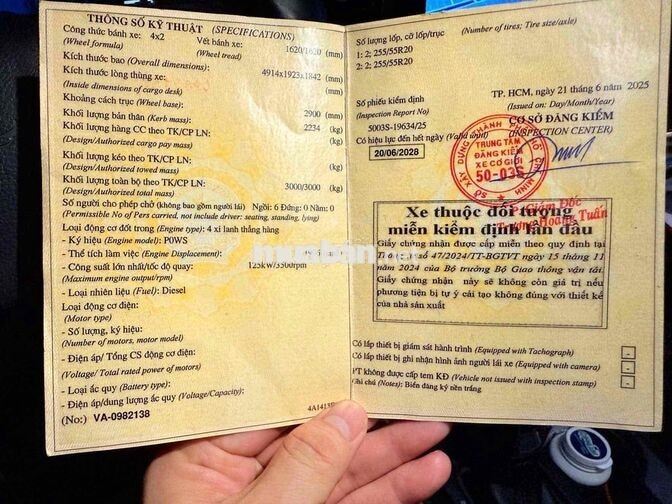 THÔNG SỐ KỸ THUẬT (SPECIFICATIONS)
Công thức bánh xe: 4x2 Vết bánh xe: 1620/1620 (mm)
(Wheel formula) (Wheel tread)
Kích thước bao (Overall dimensions): 4914x1923x1842 (mm)
Kích thước lòng thùng xe: (mm)
(Inside dimensions of cargo desk)
Khoảng cách trục (Wheel base): 2900 (mm)
Khối lượng bản thân (Kerb mass): 2234 (kg)
Khối lượng hàng CC theo TK/CP LN: (kg)
(Design/Authorized cargo pay mass)
Khối lượng kéo theo TK/CP LN: (kg)
(Design/Authorized towed mass)
Khối lượng toàn bộ theo TK/CP LN: 3000/3000 (kg)
(Design/Authorized total mass)
Số người cho phép chở (không bao gồm người lái) Ngồi: 6 Đứng: 0 Nằm: 0
(Permissible No of Pers carried, not include driver: seating, standing, lying)
Loại động cơ đốt trong (Engine type) 4 xi lanh thẳng hàng
- Ký hiệu (Engine model): P0WS
- Thể tích làm việc (Engine Displacement):
- Công suất lớn nhất/tốc độ quay: 125kW/3500rpm
(Maximum engine output/rpm)
- Loại nhiên liệu (Fuel): Diesel
Loại động cơ điện:
(Motor type)
- Số lượng, ký hiệu:
(Number of motors, motor model)
- Điện áp/ Tổng CS động cơ điện:
(Voltage/ Total rated power of motors)
- Loại ắc quy (Battery type):
- Điện áp/dung lượng ắc quy (Voltage/Capacity):
(No:) VA-0982138
Số lượng lốp, cỡ lốp/trục (Number of tires; Tire size/axle)
1: 2; 255/55R20
2: 2; 255/55R20
TP. HCM, ngày 21 tháng 6 năm 2025
(Issued on: Day/Month/Year)
Số phiếu kiểm định
(Inspection Report No)
5003S-19634/25
CƠ SỞ ĐĂNG KIỂM
(INSPECTION CENTER)
Có hiệu lực đến hết ngày (Valid until)
20/06/2028
TRUNG TÂM
ĐĂNG KIỂM
XE CƠ GIỚI
50-03S
P. Giám Đốc
Trương Hoàng Tuấn
Xe thuộc đối tượng
miễn kiểm định lần đầu
Giấy chứng nhận được cấp miễn theo quy định tại
Thông tư số 47/2024/TT-BGTVT ngày 15 tháng 11
năm 2024 của Bộ trưởng Bộ Giao thông vận tải.
Giấy chứng nhận này sẽ không còn giá trị nếu
phương tiện bị tự ý cải tạo không đúng với thiết kế
của nhà sản xuất
Có lắp thiết bị giám sát hành trình (Equipped with Tachograph)
Có lắp thiết bị ghi nhận hình ảnh người lái xe (Equipped with camera)
PT không được cấp tem KĐ (Vehicle not issued with inspection stamp)
Ghi chú (Notes): Biển đăng ký nền trắng